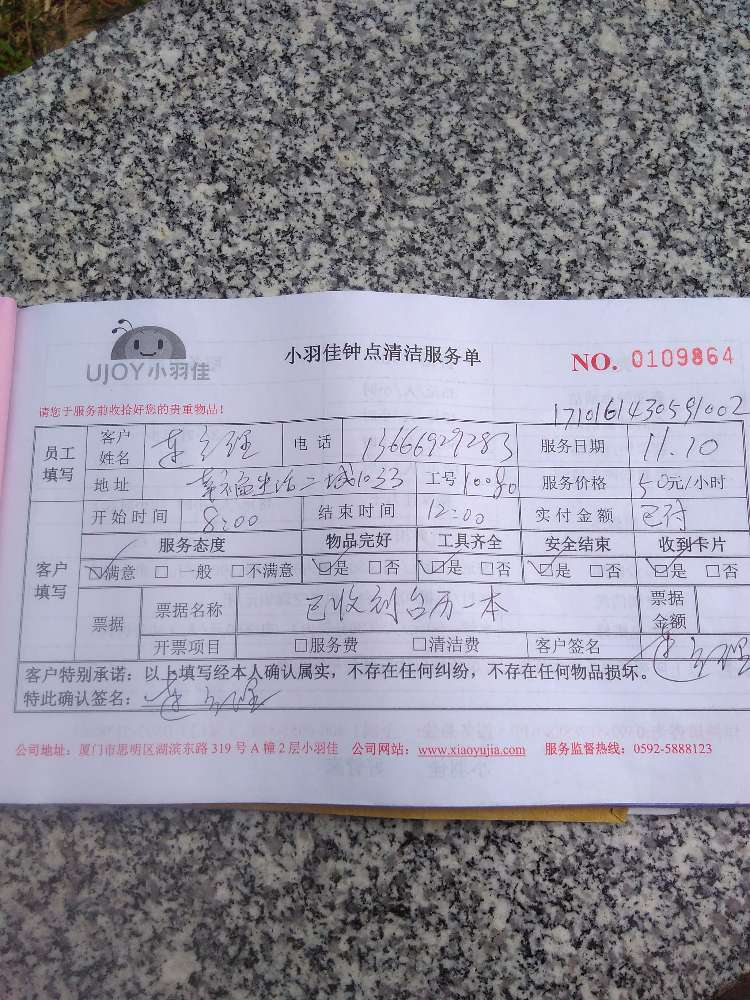 UJOY小羽佳
小羽佳钟点清洁服务单
NO. 0109864
请您于服务前收拾好您的贵重物品!
1710161430591002
员工填写 客户姓名 电话 13666929283 服务日期 11.10
地址 幸福生活二城1033 工号 10080 服务价格 50元/小时
开始时间 8:00 结束时间 12:00 实付金额 已付
客户填写 服务态度 物品完好 工具齐全 安全结束 收到卡片
☑满意 □一般 □不满意 ☑是 □否 ☑是 □否 ☑是 □否 ☑是 □否
票据 票据名称 已收到台历一本 票据金额
开票项目 □服务费 □清洁费 客户签名
客户特别承诺:以上填写经本人确认属实,不存在任何纠纷,不存在任何物品损坏。
特此确认签名:
公司地址:厦门市思明区湖滨东路 319 号 A 幢 2 层小羽佳 公司网站:www.xiaoyujia.com 服务监督热线:0592-5888123